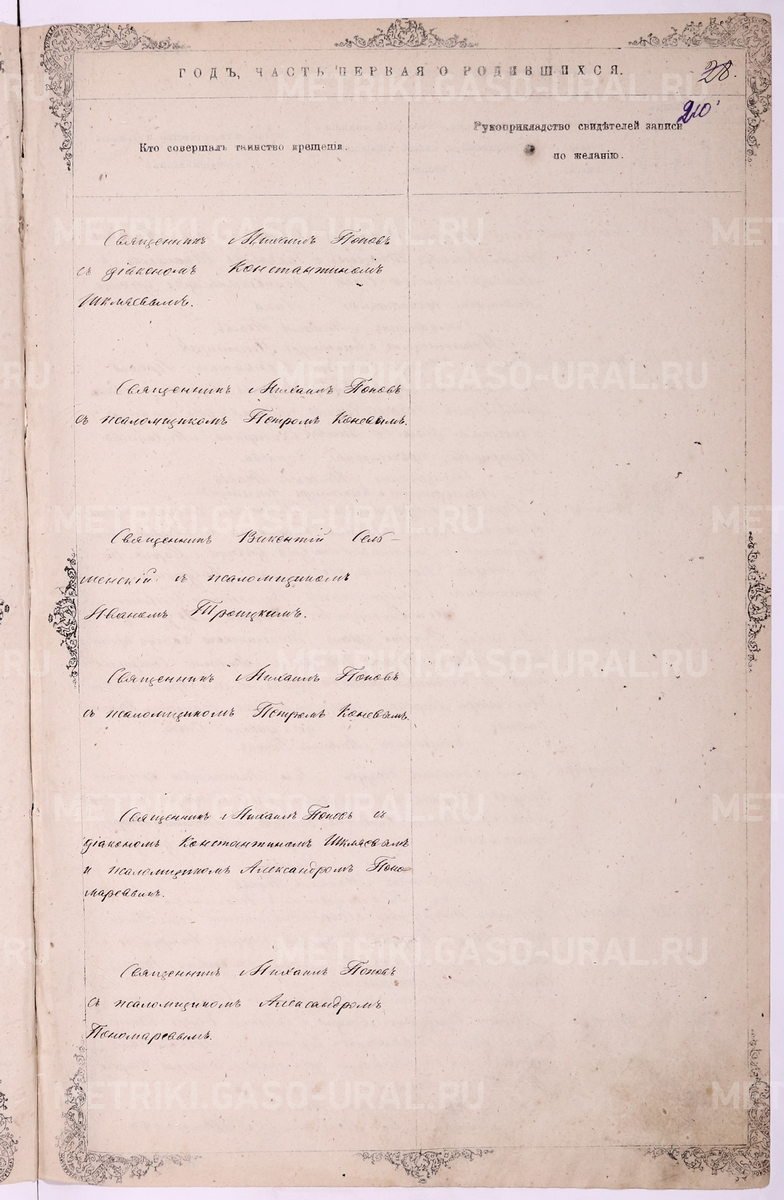 ГОДЪ, ЧАСТЬ ПЕРВАЯ О РОДИВШИХСЯ.
28.
210
Кто совершалъ таинство крещенія.
Рукоприкладство свидѣтелей записи
по желанію.
Священникъ Михаилъ Поповъ
съ діакономъ Константиномъ
Шкляевымъ.
Священникъ Михаилъ Поповъ
съ псаломщикомъ Петромъ Коневымъ.
Священникъ Викентій Сель-
менскій съ псаломщикомъ
Иваномъ Троицкимъ.
Священникъ Михаилъ Поповъ
съ псаломщикомъ Петромъ Коневымъ.
Священникъ Михаилъ Поповъ съ
діакономъ Константиномъ Шкляевымъ
и псаломщикомъ Александромъ Поно-
маревымъ.
Священникъ Михаилъ Поповъ
съ псаломщикомъ Александромъ
Пономаревымъ.
METRIKI.GASO-URAL.RU